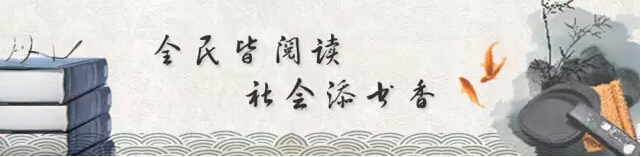 全民皆阅读
社会添书香